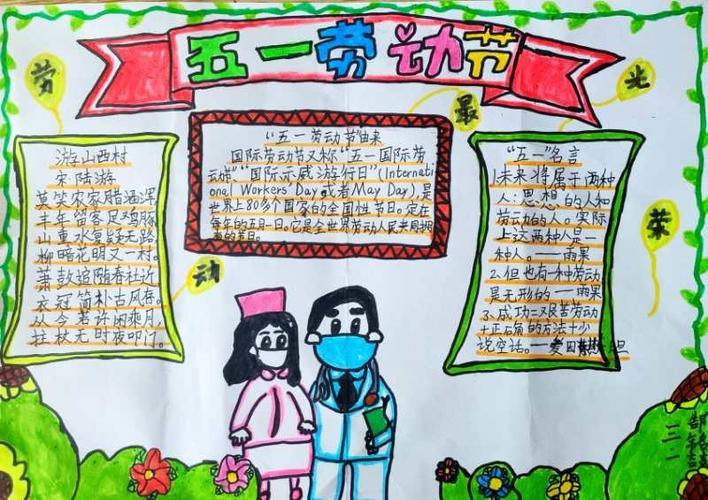 五一劳动节
劳
动
最
光
荣
游山西村
宋 陆游
莫笑农家腊酒浑
丰年留客足鸡豚
山重水复疑无路
柳暗花明又一村。
萧鼓追随春社近
衣冠简朴古风存。
从今若许闲乘月
拄杖无时夜叩门。
“五一劳动节”由来
国际劳动节又称“五一国际劳
动节”“国际示威游行日”(Internati
onal Workers' Day或者May Day),是
世界上80多个国家的全国性节日。定在
每年的五月一日。它是全世界劳动人民共同拥
有的节日。
“五一”名言
1.未来将属于两种
人:思想的人和
劳动的人。实际
上这两种人是一
种人。——雨果
2.但也有一种劳动
是无形的——雨果
3.成功=艰苦劳动
+正确的方法+少
说空话。——爱因斯坦